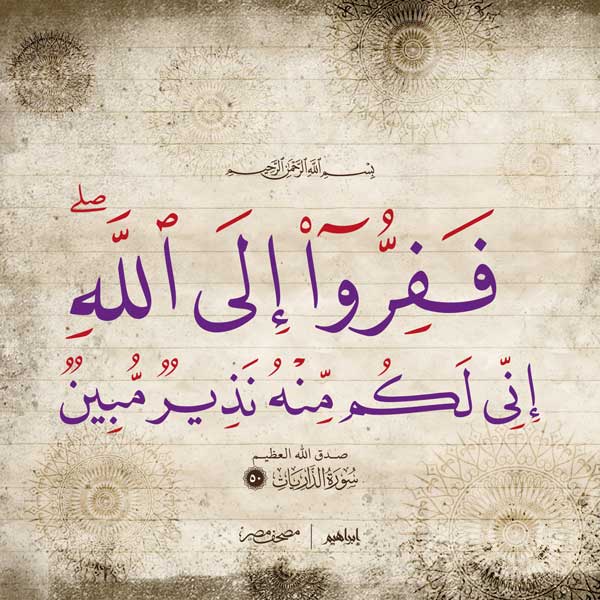 بِسْمِ ٱللَّهِ ٱلرَّحْمَٰنِ ٱلرَّحِيمِ
فَفِرُّوٓا۟ إِلَى ٱللَّهِ ۖ
إِنِّى لَكُم مِّنْهُ نَذِيرٌ مُّبِينٌ
صدق الله العظيم
سُورَةُ الذَّارِيَاتِ ٥٠
إبراهيم | مصحف مصر